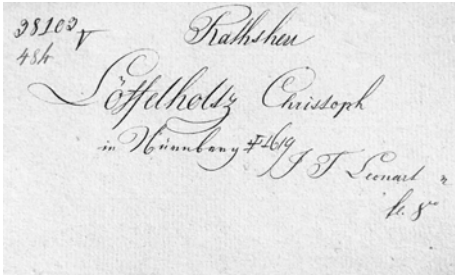 38103
484
Rathsherr
Löffelholtz Christoph
in Nürnberg ‡1619
J F Leonart
kl. 8º